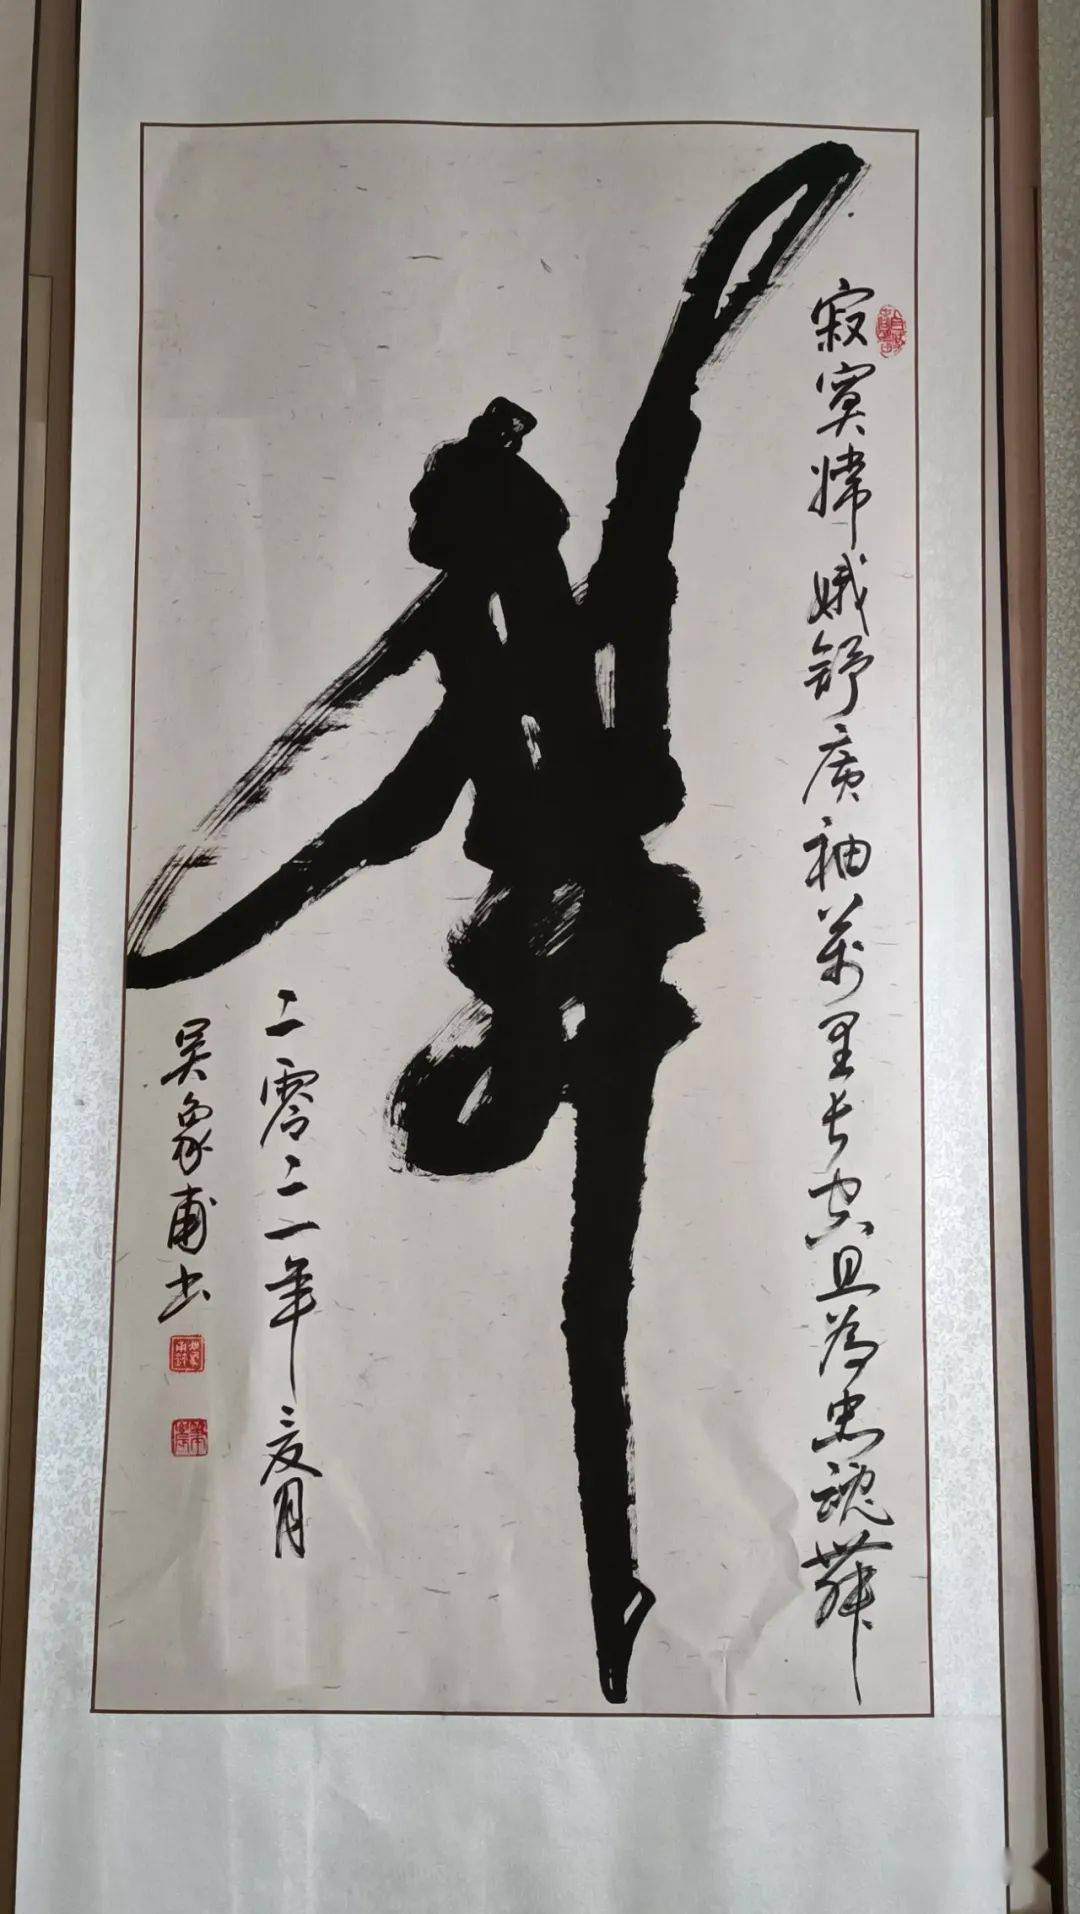 舞
寂寞嫦娥舒廣袖萬里长空且為忠魂舞
二零二一年夏月
吴象甫书